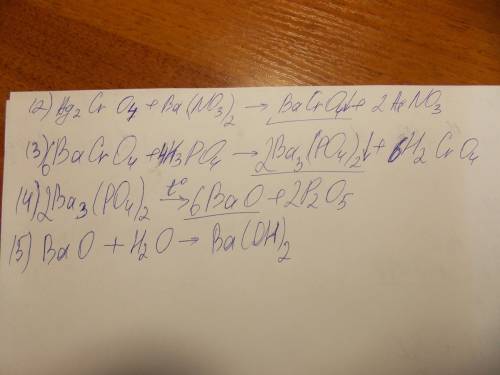 12) Ag2CrO4 + Ba(NO3)2 → BaCrO4↓ + 2AgNO3
13) 6BaCrO4 + 4H3PO4 → 2Ba3(PO4)2↓ + 6H2CrO4
14) 2Ba3(PO4)2 t° → 6BaO + 2P2O5
15) BaO + H2O → Ba(OH)2